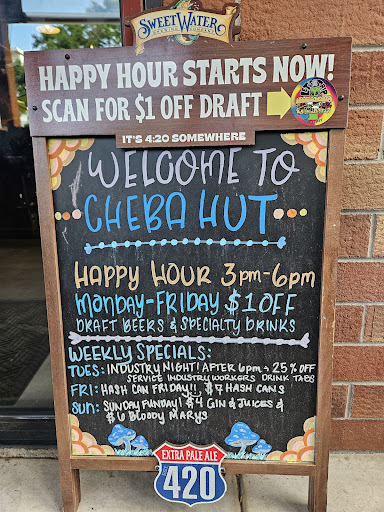 SWEETWATER
BREWING COMPANY
HAPPY HOUR STARTS NOW!
SCAN FOR $1 OFF DRAFT
IT'S 4:20 SOMEWHERE
WELCOME TO
CHEBA HUT
HAPPY HOUR 3pm-6pm
MONDAY-FRIDAY $1 OFF
DRAFT BEERS & SPECIALTY DRINKS
WEEKLY SPECIALS:
TUES: INDUSTRY NIGHT! AFTER 6pm → 25% OFF
SERVICE INDUSTRY WORKERS DRINK TABS
FRI: HASH CAN FRIDAY!! $7 HASH CANS
SUN: SUNDAY FUNDAY! $4 GIN & JUICES &
$6 BLOODY MARYS
EXTRA PALE ALE
420